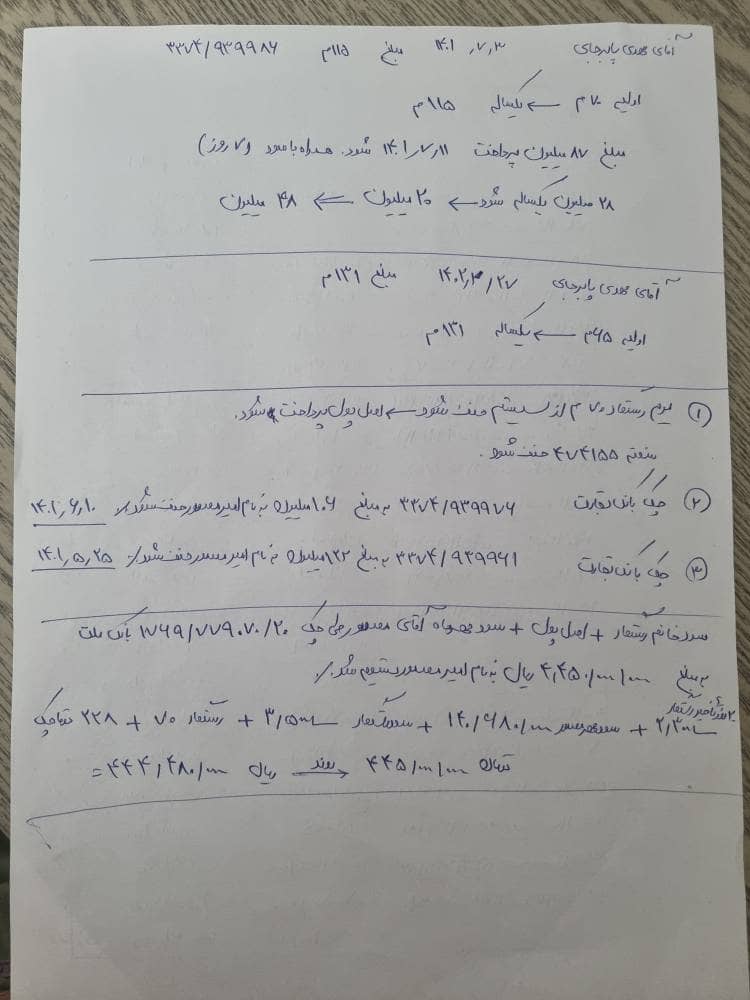 آقای مهدی پابرجای ۱۴۰۱٫۷٫۳ مبلغ ۱۱۵م ۳۳۷۴/۹۳۹۹۸۶
اولیه ۷۰م ← یکساله ۱۱۵م
مبلغ ۸۷ میلیون پرداخت ۱۴۰۱٫۷٫۱۱ شود. همراه با سود (۷ روز)
۲۸ میلیون یکساله شود ← ۲۰ میلیون ← ۴۸ میلیون
آقای مهدی پابرجای ۱۴۰۲٫۳/۲۷ مبلغ ۱۳۱م
اولیه ۶۵م ← یکساله ۱۳۱م
① رستغار ۷۰م از سیستم حذف شود ← اصل پول پرداخت شود.
سفته ۴۷۴۱۵۵ حذف شود.
② چک بانک تجارت ۳۳۷۴/۹۳۹۹۷۶ به مبلغ ۱۰۶ میلیون به نام امیر منصور حذف شد./ ۱۴۰۱٫۶٫۱۰
③ چک بانک تجارت ۳۳۷۴/۹۳۹۹۶۱ به مبلغ ۱۲۲ میلیون به نام امیر منصور حذف شد./ ۱۴۰۱٫۵٫۲۵
سود خانم رستغار + اصل پول + سود مهرماه آقای منصور طی چک ۱۷۶۹/۷۷۹۰۷۰/۲۰ بانک ملت
به مبلغ ۴٫۴۵۰/۰۰۰/۰۰۰ ریال به نام امیر منصور تسلیم شد./
۲۲۸ دو تا چک + ۷۰ رستغار + ۳/۵۰۰ سود رستغار + ۱۴۰/۶۸۰/۰۰۰ سود منصور + ۲٫۳۰۰ تاخیر رستغار
= ۴۴۴٫۴۸۰/۰۰۰ ریال روند → ۴۴۵/۰۰۰/۰۰۰